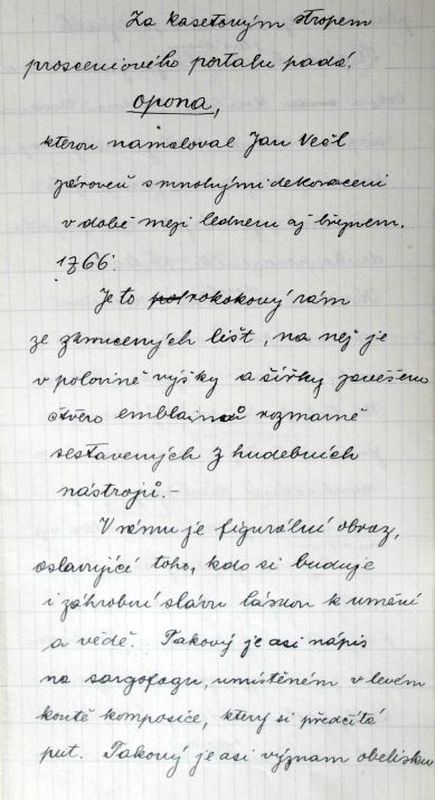 Za kasetovým stropem
prosceniového portalu padá.
opona,
kterou namaloval Jan Vešl
zároveň s mnohými dekoracemi
v době mezi lednem až březnem.
1766.
Je to rokokový rám
ze zkrucených lišt, na nej je
v polovině výšky a šířky zavěšeno
čtvero emblamů rozmarně
sestavených z hudebních
nástrojů.-
V rámu je figurální obraz,
oslavující toho, kdo si buduje
i záhrobní slávu láskou k umění
a vědě. Takový je asi nápis
na sargofagu, umístěném v levém
koutě komposice, který si předčítá
put. Takový je asi význam obelisku